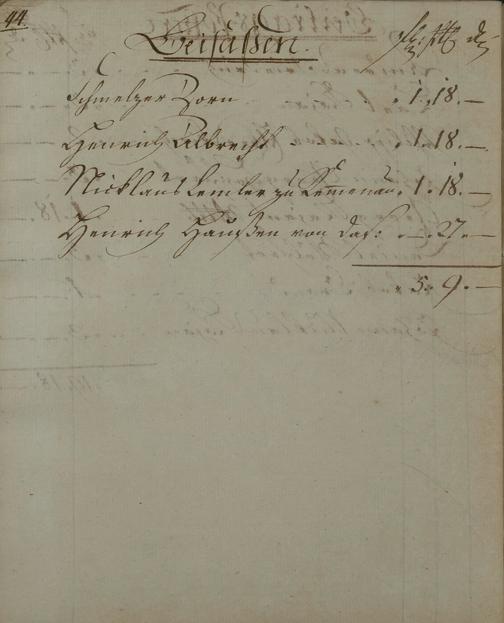 44.
Beisaßen.
Schmelzer Zorn . 1. 18. —
Henrich Albrecht . 1. 18. —
Nicklaus Lemler zu . 1. 18. —
Henrich Haußen von das: . — . 27. —
. 5. 9. —